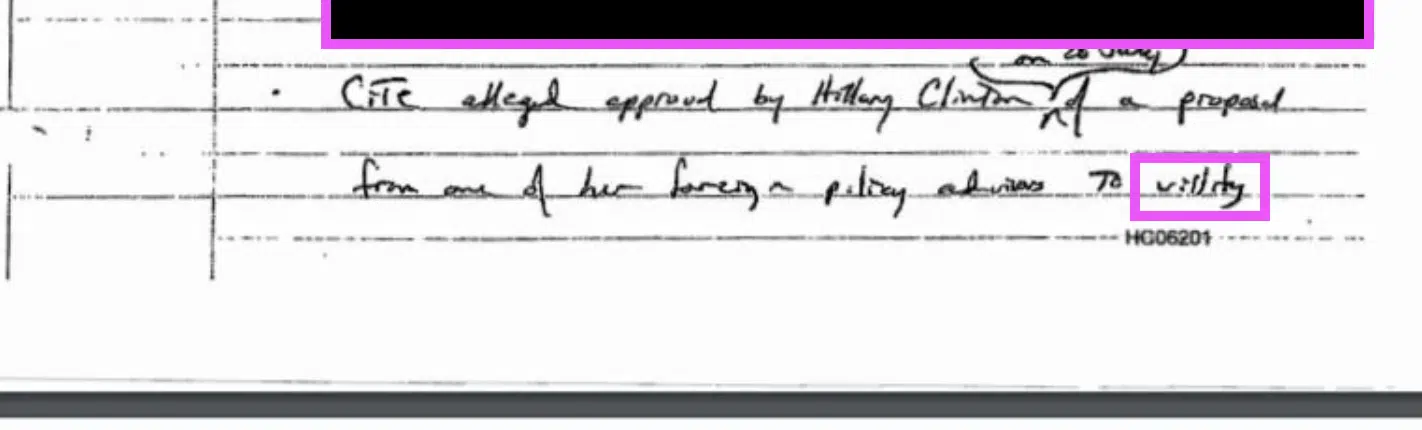 on 26 July
• CITE alleged approval by Hillary Clinton ^ of a proposal
from one of her foreign policy advisors to villify
HC06201